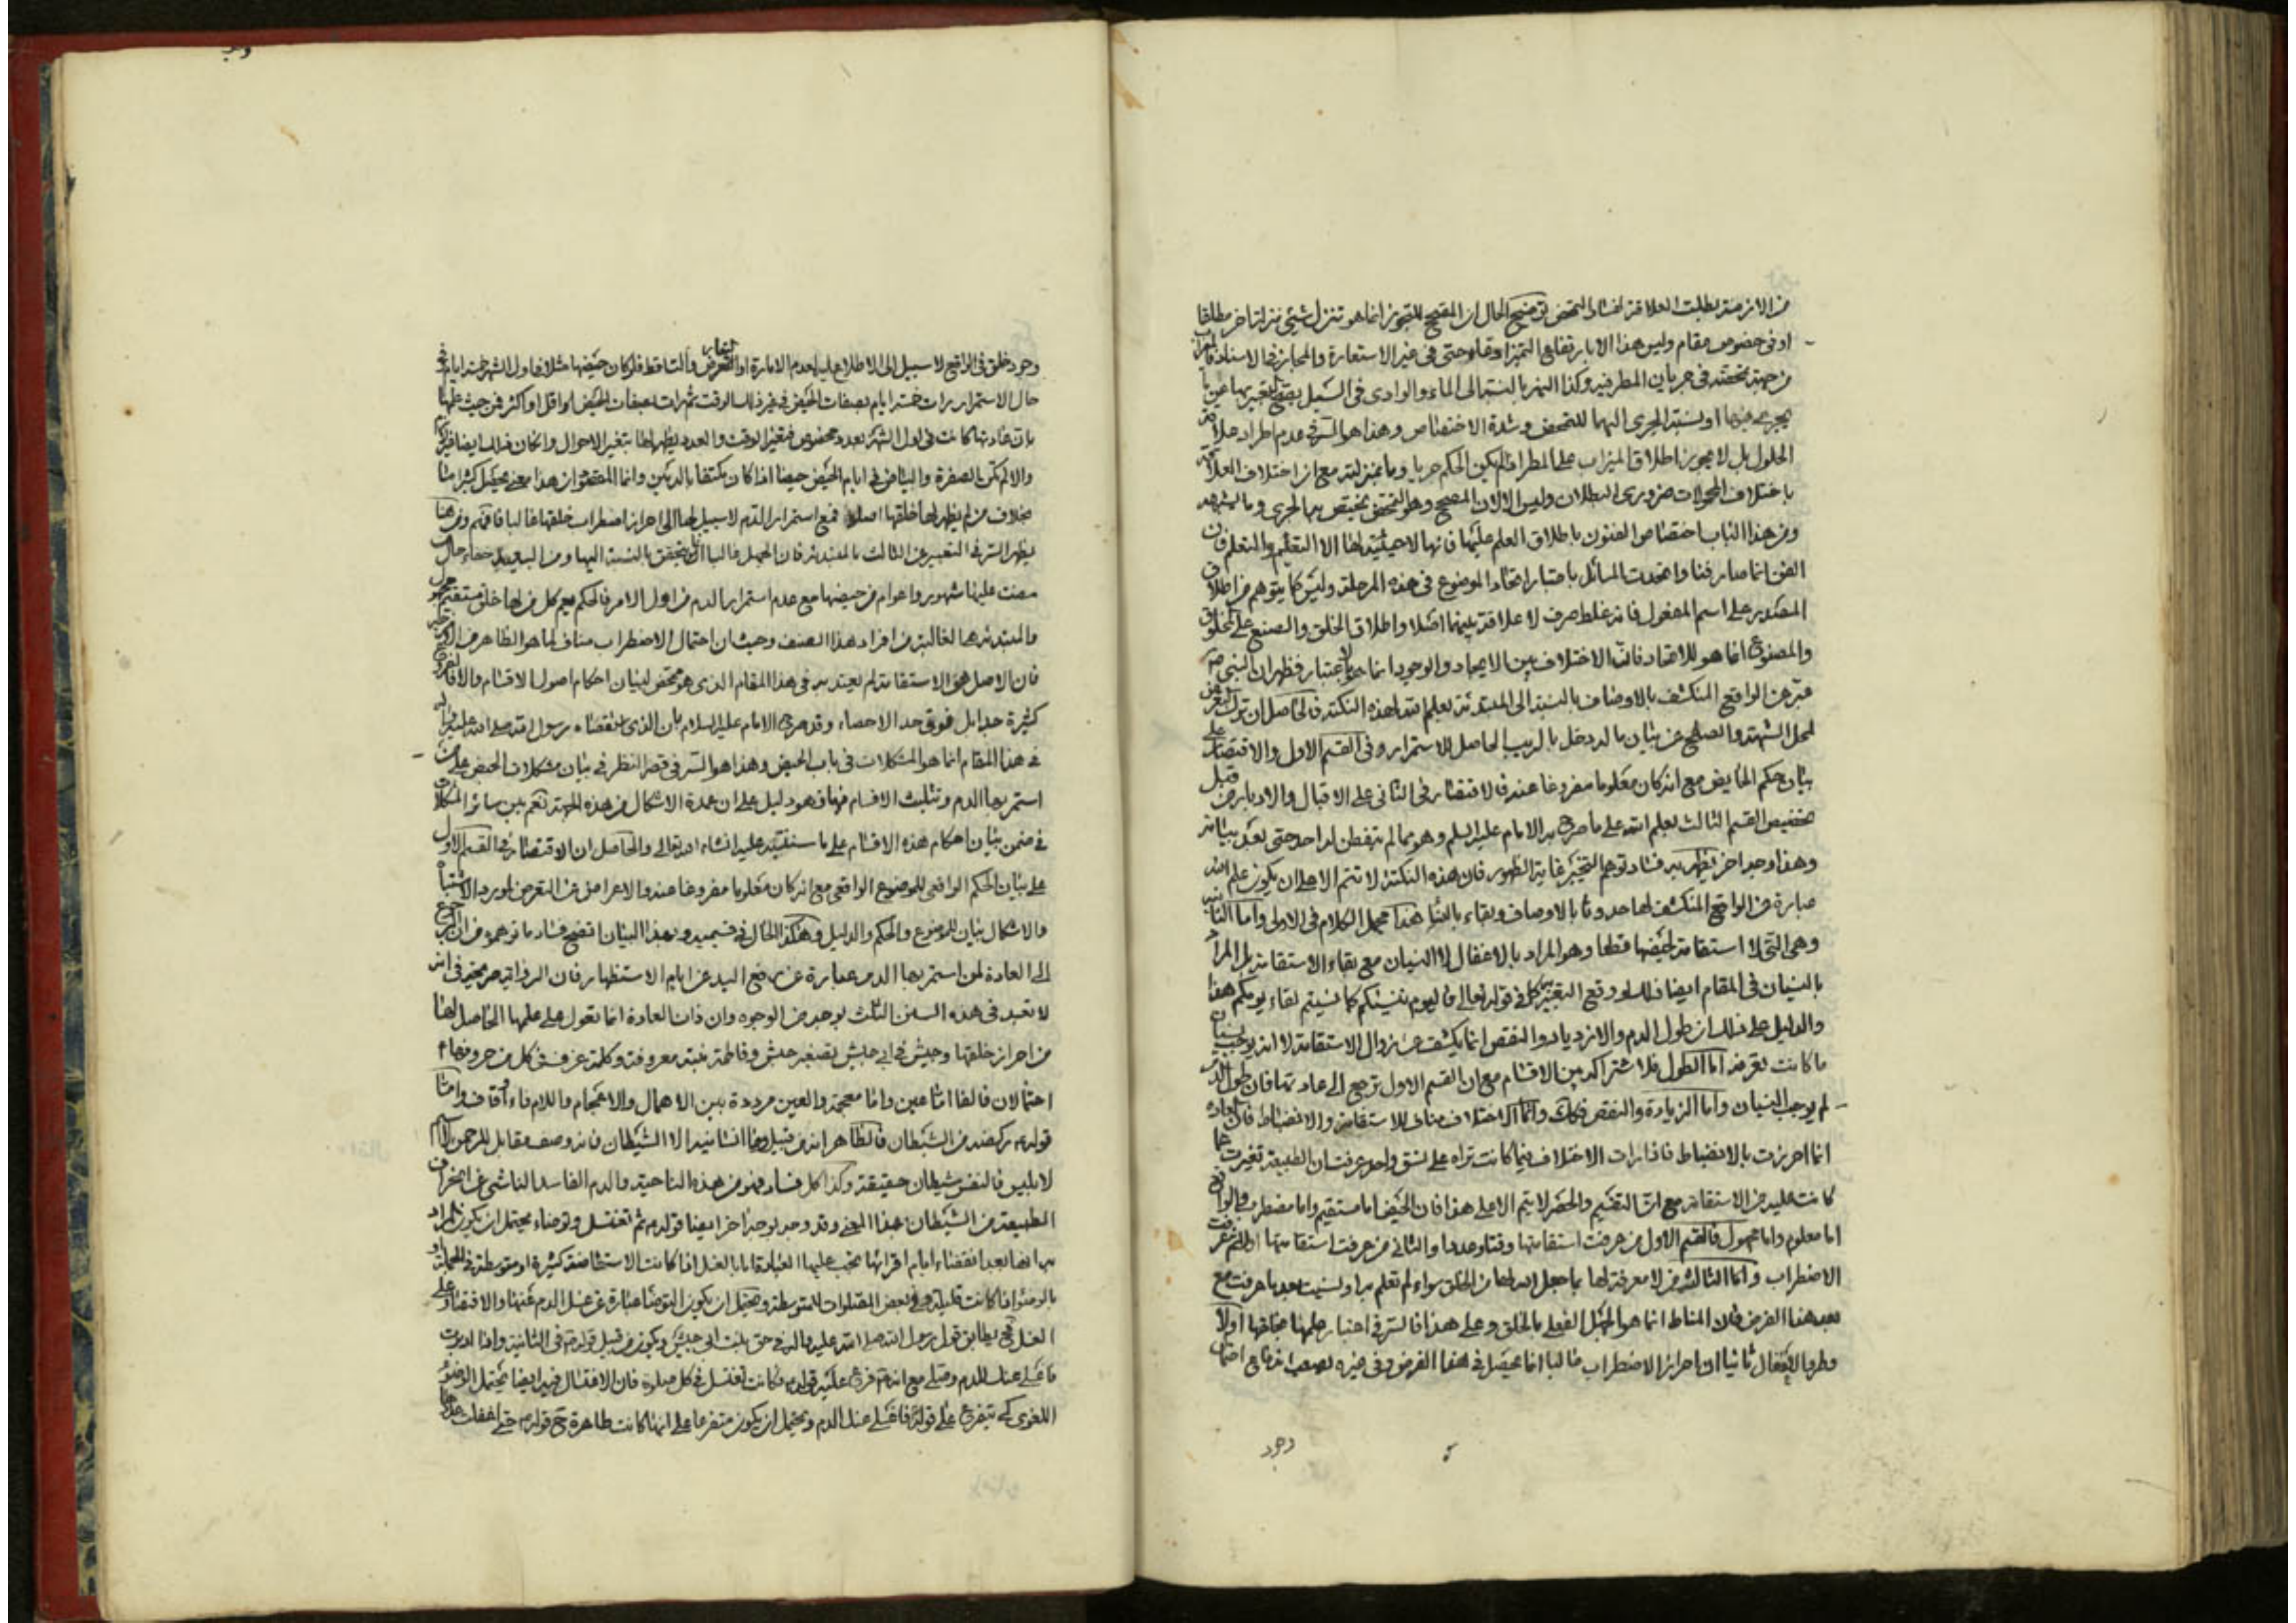 من الازمنة لبطلت العلاقة لفساد التمحض توضيح الحال ان المصحح للتجوز انما هو تنزل شيئ منزلة اخر مطلقا
او في خصوص مقام وليس هذا الا بارتفاع التميز ادعاء حتى في غير الاستعارة والمجاز في الاسناد
من جهة تمحضه في جريان المطر فيه وكذا النهر بالنسبة الى الماء والوادى في السيل يصح التعبير بها عن
يجرى منها او نسبة الجرى اليها للتمحض وشدة الاختصاص وهذا هو السر في عدم اطراد علاقة
الحلول بل لا يجوز اطلاق الميزاب على المطر اذا لم يكن الحكم جريا وما بمنزلته مع ان اختلاف العلاقة
باختلاف المحمولات ضرورى البطلان وليس الا لان المصحح وهو التمحض يختص بالجرى وما
ومن هذا الباب اختصاص الفنون باطلاق العلم عليها فانها لا حيثية لها الا التعليم والتعلم فان
الفن انما صار فنا واتحدت المسائل باعتبار اتحاد الموضوع في هذه المرحلة وليس كما يتوهم من اطلاق
المصدر على اسم المفعول فانه غلط صرف لا علاقة بينهما اصلا واطلاق الخلق والصنع على المخلوق
والمصنوع انما هو للاتحاد فان الاختلاف بين الايجاد والوجود انما هو بالاعتبار فظهر ان النبي ص
عبر عن الواقع المنكشف بالاوصاف بالنسبة الى المبتدئة بعلم الله لهذه النكتة فالحاصل ان ترك التعرض
لمحل الشبهة والصلح عن بيان ما لم دخل بالريب الحاصل للاستمرار وفي القسم الاول والاقتصار على
بيان حكم الحايض مع انه كان معلوما مفروغا عنه والاقتصار في الثاني على الاقبال والادبار من قبيل
تخصيص القسم الثالث بعلم الله على ما صرح به الامام عليه السلم وهو مما لم يتفطن له احد حتى بعد بيانه
وهذا وجه اخر يظهر به فساد توهم التخيير غاية الظهور فان هذه النكتة لا تتم الا على ان يكون علم الله
عبارة عن الواقع المنكشف لها حدوثا بالاوصاف وبقاء بالبناء هذا مجمل الكلام في الاولى واما الثانية
وهي التى لا استقامة لحيضها قطعا وهو المراد بالاغفال لا النسيان مع بقاء الاستقامة بل المراد
بالنسيان في المقام ايضا ذلك لو وقع التعبير به كما في قوله تعالى فاليوم ننسيكم كما نسيتم لقاء يومكم هذا
والدليل على ذلك ان طول الدم والازدياد والنقص انما يكشف عن زوال الاستقامة لا انه يوجب نسيان
ما كانت تعرفه اما الطول فلاشتراكه بين الاقسام مع ان القسم الاول ترجع الى عادتها فان طول الدم
لم يوجب النسيان واما الزيادة والنقص فكك وانما الاختلاف مناف للاستقامة والانضباط فان العادة
انما احرزت بالانضباط فاذا رات الاختلاف فيما كانت تراه على نسق واحد عرفت ان الطبيعة تغيرت عما
كانت عليه من الاستقامة مع ان التقسيم والحصر لا يتم الا على هذا فان الحيض اما مستقيم واما مضطرب والواقع
اما معلوم واما مجهول فالقسم الاول من عرفت استقامتها وقتا وعددا والثانى من عرفت استقامتها اولا ثم عرفت
الاضطراب واما الثالثة من لا معرفة لها بما جعل الله لها من الخلق سواء لم تعلم به او نسيت بعد ما عرفت مع
بعد هذا الفرض فان المناط انما هو الجهل الفعلى بالخلق وعلى هذا فالسر في اعتبار علمها بخلقها اولا
وطرو الاغفال ثانيا ان احراز الاضطراب غالبا انما يحصل في هذا الفرض وفي غيره يصعب ارتفاع احتمال
وجود
وجود خلق في الواقع لا سبيل الى الاطلاع عليه لعدم الامارة او التعارض والتساقط فلو كان حيضها مثلا في اول الشهر خمسة ايام في
حال الاستمرار رات خمسة ايام بصفات الحيض في غير ذلك الوقت ثم رات بصفات الحيض اقل او اكثر فمن حيث علمها
بان عادتها كانت في اول الشهر بعدد مخصوص فبتغير الوقت والعدد يظهر لها تغير الاحوال وان كان ذلك ايضا
والا لم تكن الصفرة والبياض في ايام الحيض حيضا اذا كان مكتنفا بالدمين وانما المقصود ان هذا معنى يحصل كثيرا ما
بخلاف من لم يظهر لها خلقها اصلا فمع استمرار الدم لا سبيل لها الى احراز اضطراب خلقها غالبا فافهم ومن هنا
يظهر السر في التعبير عن الثالث بالمبتدئة فان الجهل غالبا انما يتحقق بالنسبة اليها ومن البعيد خفاء حال من
مضت عليها شهور واعوام من حيضها مع عدم استمرار الدم من اول الامر فالحكم يعم كل من لها خلق مستقيم مجهول
والمبتدئة هي الغالبة من افراد هذا الصنف وحيث ان احتمال الاضطراب مناف لما هو الظاهر من
فان الاصل هو الاستقامة لم يعتد به في هذا المقام الذى هو متمحض لبيان احكام اصول الاقسام والا فالفروع
كثيرة جدا بل فوق حد الاحصاء وقد صرح الامام عليه السلام بان الذى رسول الله صلى الله عليه واله
في هذا المقام انما هو المشكلات في باب الحيض وهذا هو السر في قصر النظر في بيان مشكلات الحيض على من
استمر بها الدم وتثليث الاقسام فيها فهو دليل على ان عمدة الاشكال من هذه الجهة نعم بين سائر المشكلات
في ضمن بيان احكام هذه الاقسام على ما سننبه عليه انشاء الله تعالى والحاصل ان الاقتصار في القسم الاول
على بيان الحكم الواقعى للموضوع الواقعى مع انه كان معلوما مفروغا عنه والاعراض عن التعرض لمورد الاشتباه
والاشكال بيان للموضوع والحكم والدليل وهكذا الحال في قسيميه وبهذا البيان اتضح فساد ما توهموه من ان الرجوع
الى العادة لمن استمر بها الدم عبارة عن رفع اليد عن ايام الاستظهار فان الرواية صريحة في انه
لا تعبد في هذه السنن الثلث بوجه من الوجوه وان ذات العادة انما تعول على علمها الحاصل لها
من احراز خلقها وحبيش في ابي حبيش تصغير حبش وفاطمة بنته معروفة وكلمة عزف في كل من حروفها
احتمالان فالفا اما عين واما معجمة والعين مرددة بين الاهمال والاعجام واللام فاء او قاف واما
قوله ص ركضة من الشيطان فالظاهر انه من قبيل وما انسانيه الا الشيطان فانه وصف مقابل للرحمن لا اسم
لابليس فالنفس شيطان حقيقة وكذا كل فساد فهو من هذه الناحية والدم الفاسد الناشى عن انحراف
الطبيعة من الشيطان بهذا المعنى وقد وجه بوجه اخر ايضا قوله ص ثم تغتسل وتوضاء يحتمل ان يكون المراد
به انها بعد انقضاء ايام اقرائها تجب عليها العبادة اما بالغسل اذا كانت الاستحاضة كثيرة او متوسطة في الجملة او
بالوضوء اذا كانت قليلة وفي بعض الصلوات للمتوسطة ويحتمل ان يكون التوضأ عبارة عن غسل الدم عنها والاقتصار على
الغسل كى يطابق قول رسول الله صلى الله عليه واله في حق بنت ابى حبيش ويكون من قبيل قوله ص في الثانية واذا ادبرت
فاغسلى عنك الدم وصلى مع انه ص فرع عليه قوله فكانت تغتسل في كل صلوة فان الاغتسال فيه ايضا يحتمل الوضوء
اللغوى كى يتفرع على قوله فاغسلى عنك الدم ويحتمل ان يكون متفرعا على انها كانت طاهرة ح قوله ص حتى اغفلت عددها